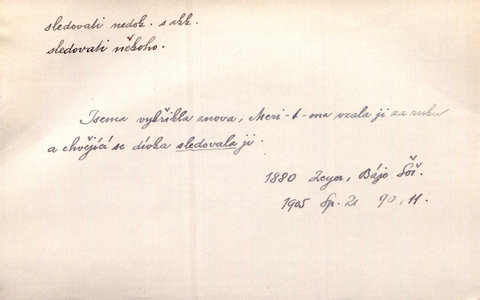 sledovati nedok. s akk.
sledovati někoho.
Isema vykřikla znova, Meri-t-ma vzala ji za ruku
a chvějící se dívka sledovala ji.
1880 Zeyer, Báje Šoš.
1905 Sp. 21 90, 11.